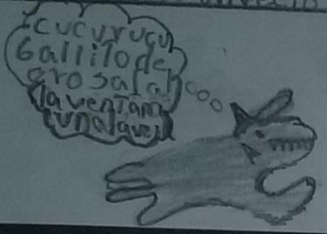 cucurucu
Gallilo de
oro sal a
la ventana
una